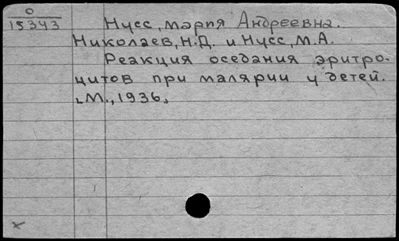 О
15343
Нусс, Мария Андреевна.
Николаев, Н.Д. и Нусс, М.А.
Реакция оседания эритро-
цитов при малярии у детей.
[М., 1936]